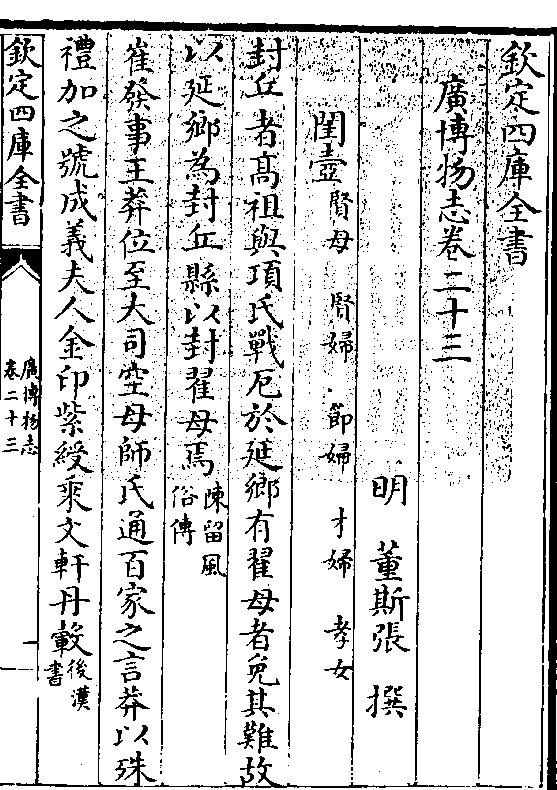 欽定四庫全書
廣博物志卷二十三
明 董斯張 撰
閨壼 賢母 賢婦 節婦 才婦 孝女
封丘者髙祖與項氏戰厄於延鄉有翟母者免其難故
以延鄉為封丘縣以封翟母焉 陳留風俗傳
崔發事王莽位至大司空母師氏通百家之言莽以殊
禮加之號成義夫人金印紫綬乘文軒丹轂 後漢書
欽定四庫全書
廣博物志
卷二十三
一